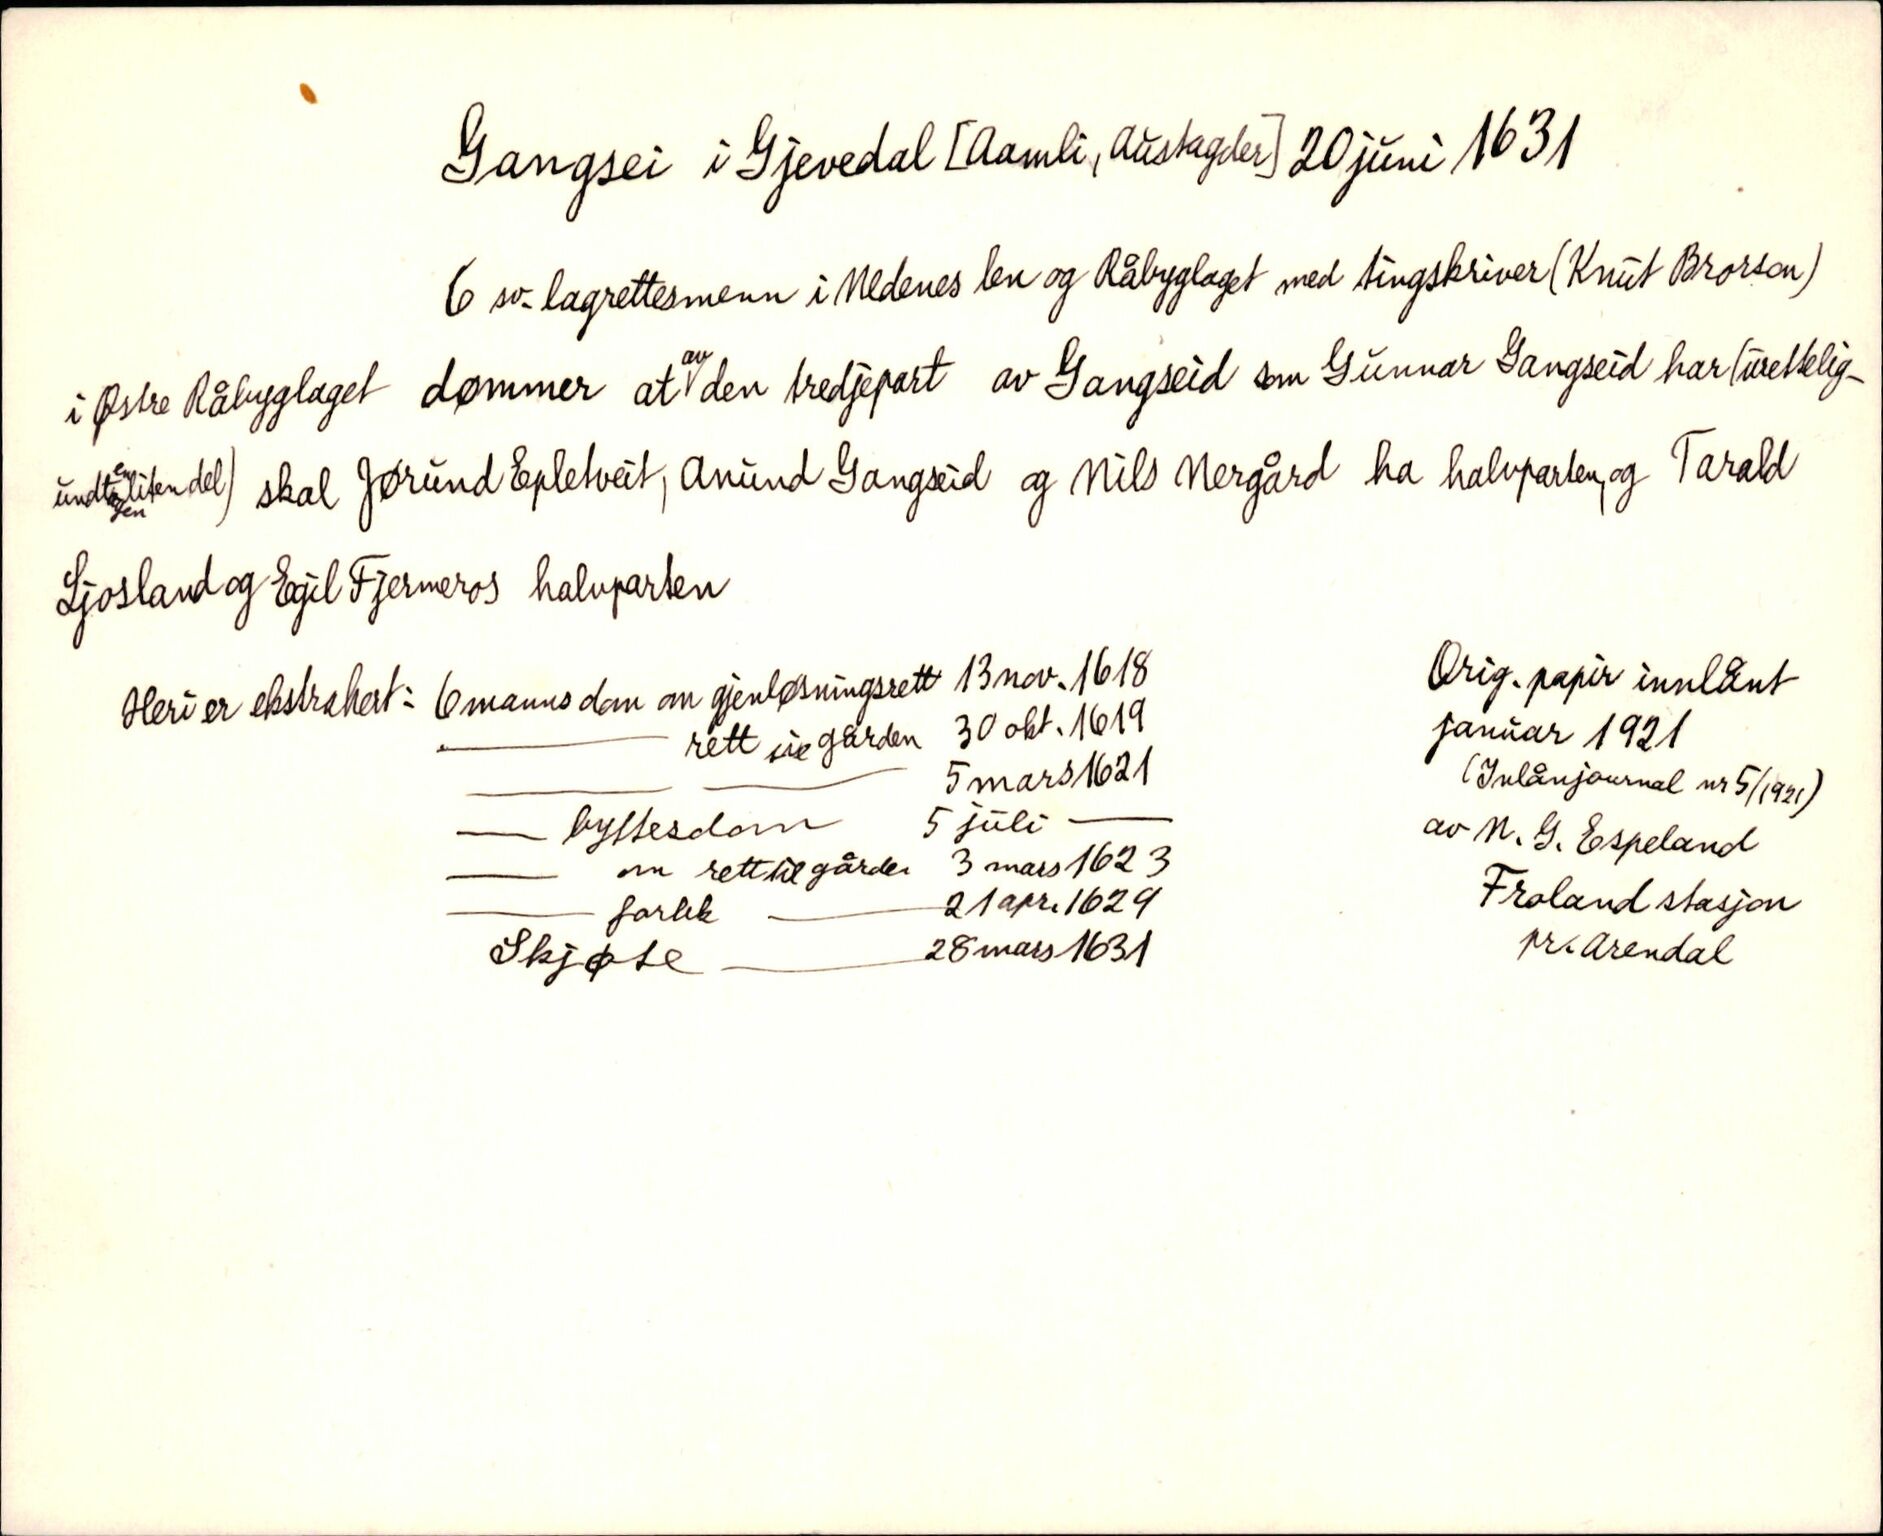 Gangsei i Gjevedal [Aamli, Austagder] 20 juni 1631
6 sv. lagrettesmenn i Nedenes len og Råbyglaget med tingskriver (Knut Brorson)
i Østre Råbyglaget dømmer at av den tredjepart av Gangseid som Gunnar Gangseid har (urettelig-
undtagen en liten del) skal Jørund Epletveit, Anund Gangseid og Nils Nergård ha halvparten, og Tarald
Ljosland og Egil Fjermeros halvparten
Heri er ekstrahert: 6 manns dom om gjenløsningsrett 13 nov. 1618
— rett til gården 30 okt. 1619
— — 5 mars 1621
— byttesdom 5 juli —
— om rett til gården 3 mars 1623
— forlik — 21 apr. 1629
Skjøte — 28 mars 1631
Orig. papir innlånt
januar 1921
(Inlånjournal nr 5/1921)
av N. G. Espeland
Froland stasjon
pr. Arendal